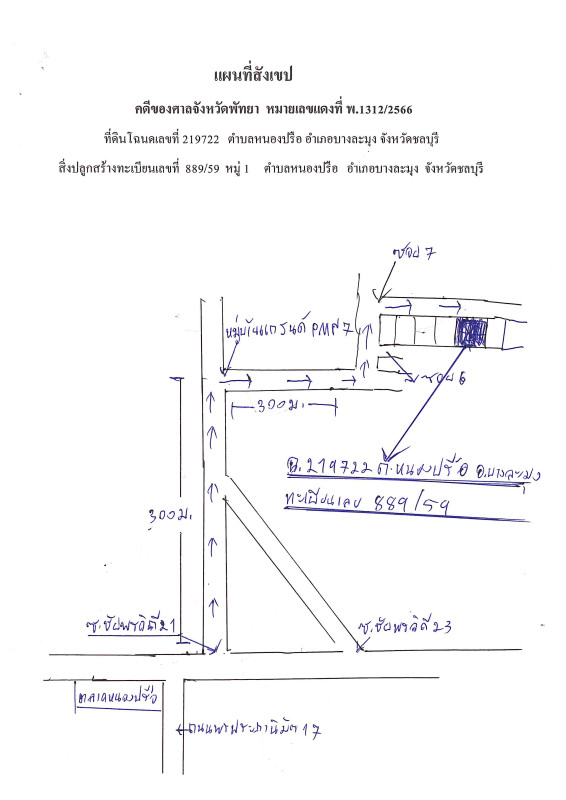 แผนที่สังเขป
คดีของศาลจังหวัดพัทยา หมายเลขแดงที่ พ.1312/2566
ที่ดินโฉนดเลขที่ 219722 ตำบลหนองปรือ อำเภอบางละมุง จังหวัดชลบุรี
สิ่งปลูกสร้างทะเบียนเลขที่ 889/59 หมู่ 1 ตำบลหนองปรือ อำเภอบางละมุง จังหวัดชลบุรี
ซอย 7
หมู่บ้านแกรนด์ PMP 7
ซอย 6
300 ม.
ฉ.219722 ต.หนองปรือ อ.บางละมุง
ทะเบียนเลข 889/59
300 ม.
ซ.ชัยพรวิถี 21
ซ.ชัยพรวิถี 23
ตลาดหนองปรือ
ถนนพรประภานิมิต 17